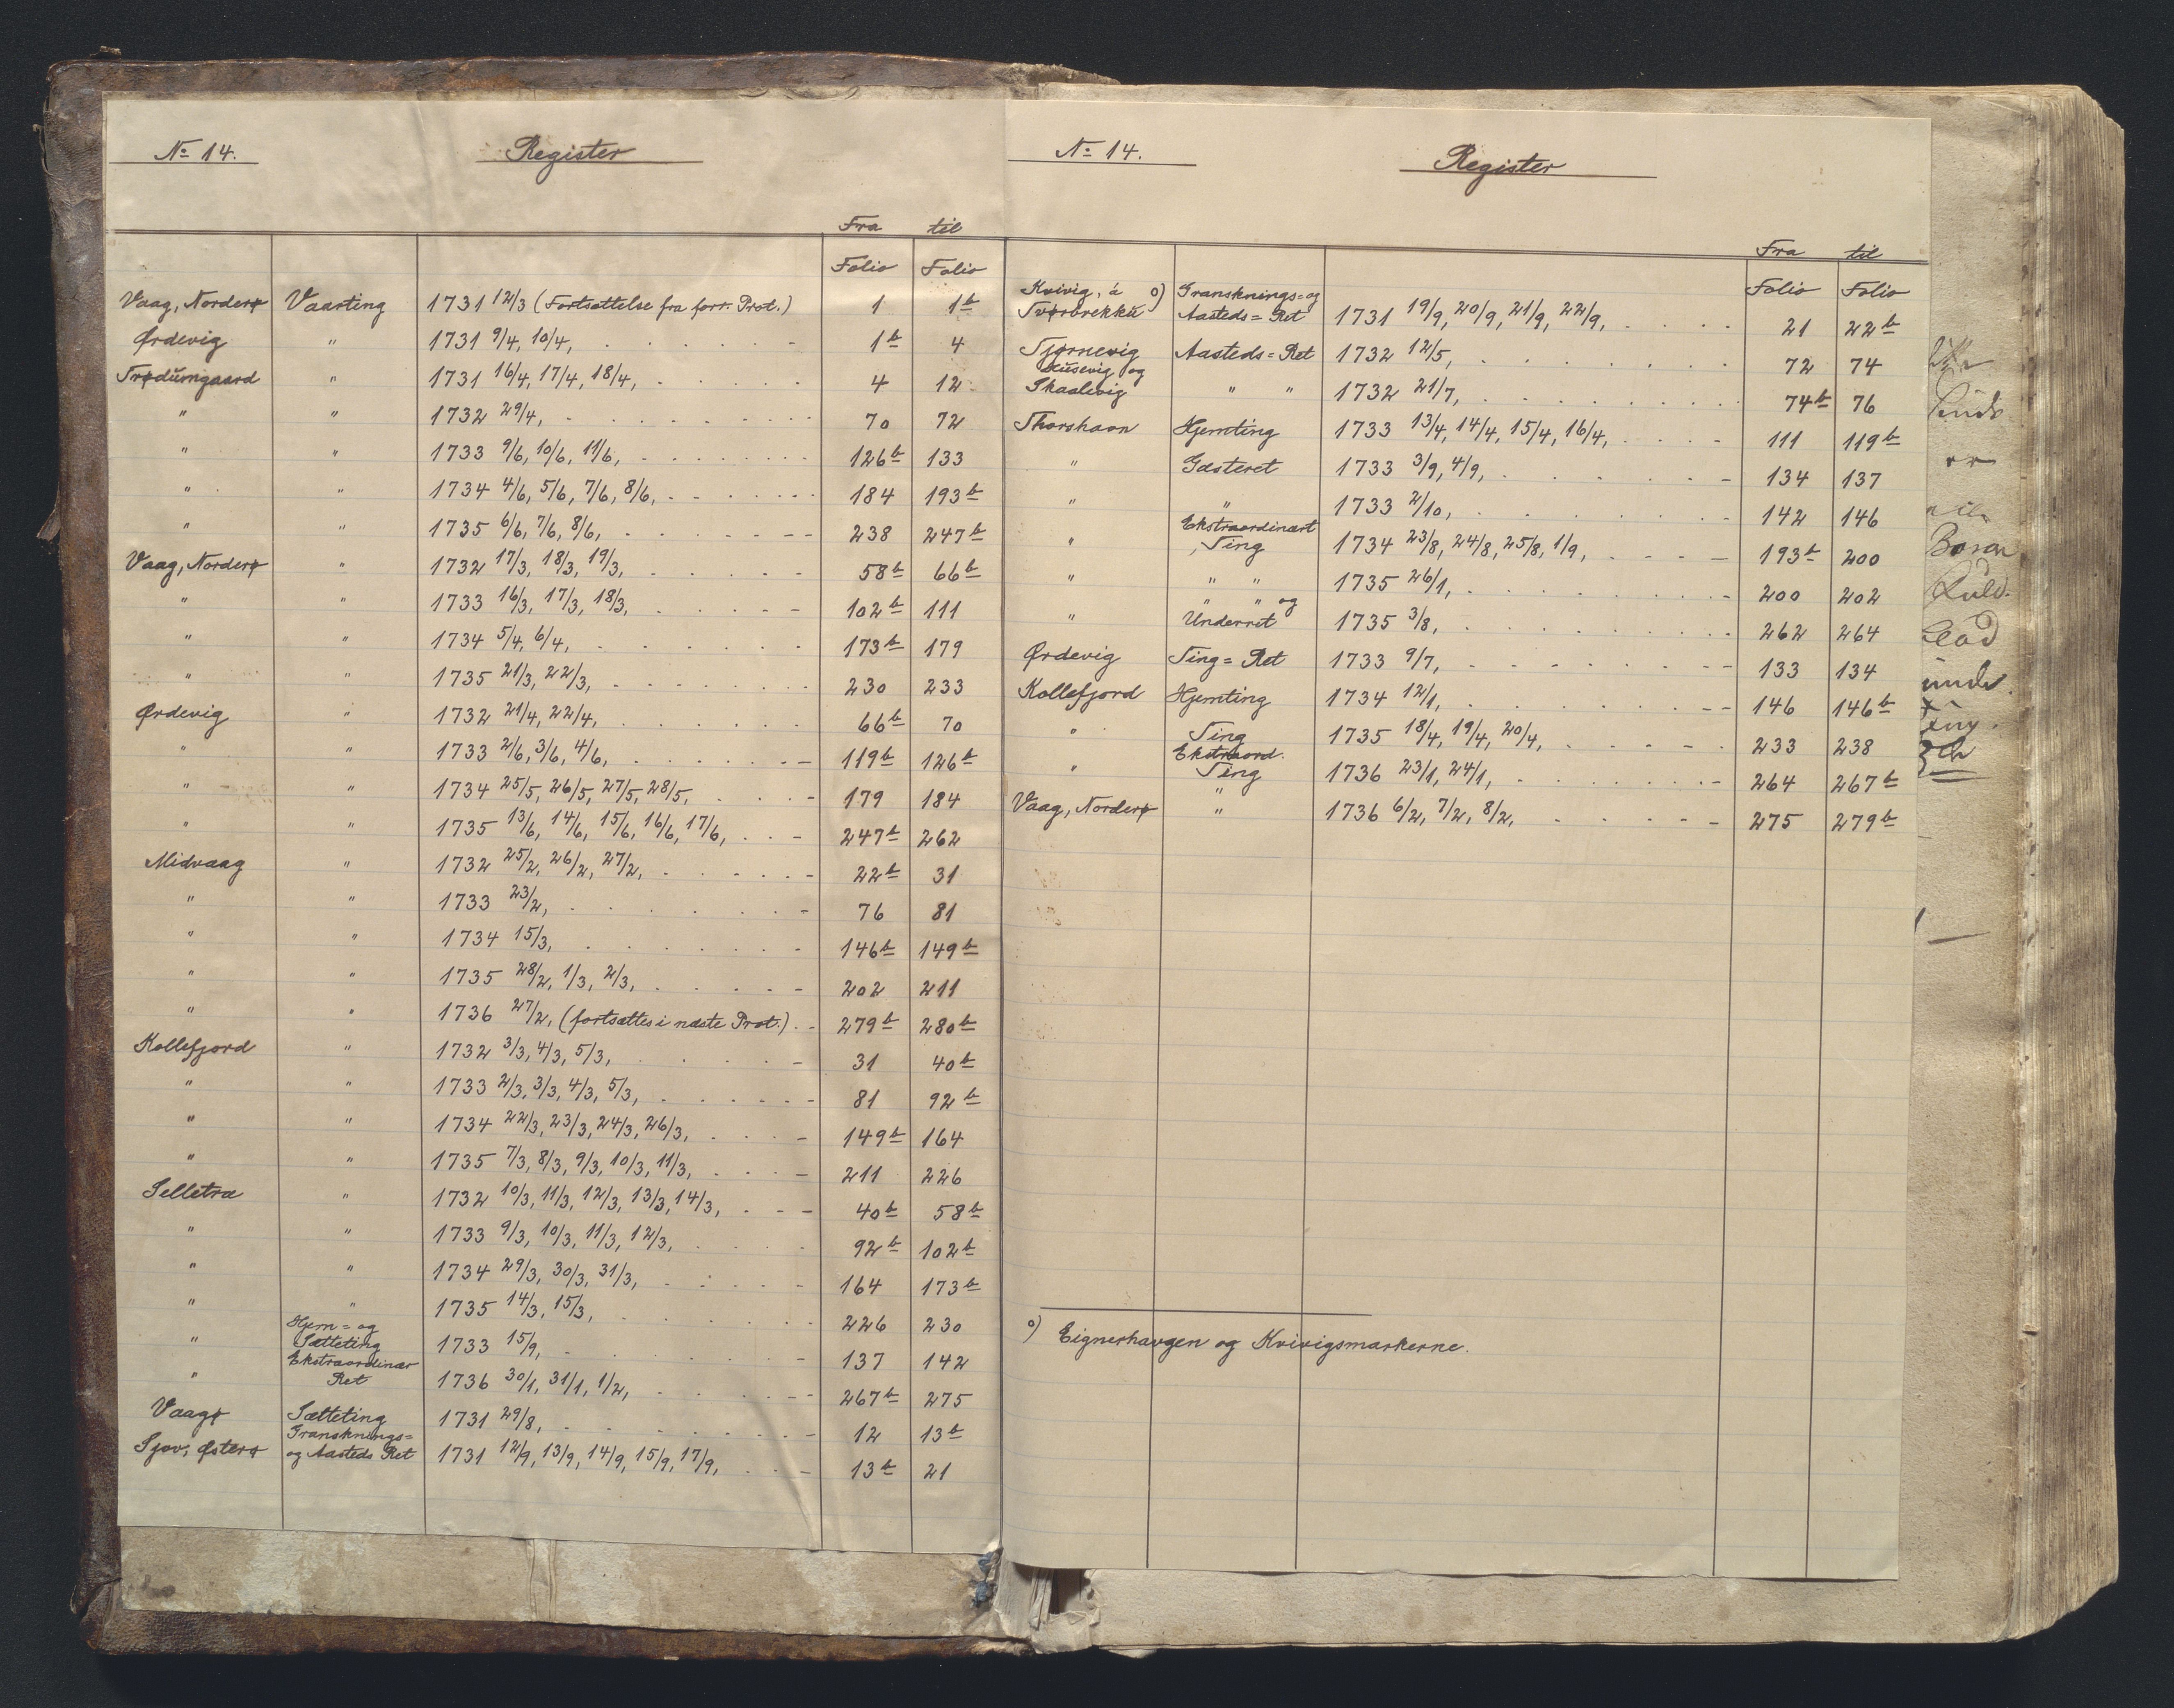 No 14.
Register
Fra til
Folio Folio
Vaag, Norderø Vaarting 1731 12/3 (Fortsættelse fra forr. Prot.) 1 1b
Ørdevig " 1731 9/4, 10/4, 1b 4
Trødumgaard " 1731 16/4, 17/4, 18/4, 4 12
" " 1732 29/4, 70 72
" " 1733 9/6, 10/6, 11/6, 126b 133
" " 1734 4/6, 5/6, 7/6, 8/6, 184 193b
" " 1735 6/6, 7/6, 8/6, 238 247b
Vaag, Norderø " 1732 17/3, 18/3, 19/3, 58b 66b
" " 1733 16/3, 17/3, 18/3, 102b 111
" " 1734 5/4, 6/4, 173b 179
" " 1735 21/3, 22/3, 230 233
Ørdevig " 1732 21/4, 22/4, 66b 70
" " 1733 2/6, 3/6, 4/6, 119b 126b
" " 1734 25/5, 26/5, 27/5, 28/5, 179 184
" " 1735 13/6, 14/6, 15/6, 16/6, 17/6, 247b 262
Midvaag " 1732 25/2, 26/2, 27/2, 22b 31
" " 1733 23/2, 76 81
" " 1734 15/3, 146b 149b
" " 1735 28/2, 1/3, 2/3, 202 211
" " 1736 27/2, (fortsættes i næste Prot.) 279b 280b
Kollefjord " 1732 3/3, 4/3, 5/3, 31 40b
" " 1733 2/3, 3/3, 4/3, 5/3, 81 92b
" " 1734 22/3, 23/3, 24/3, 26/3, 149b 164
" " 1735 7/3, 8/3, 9/3, 10/3, 11/3, 211 226
Selletræ " 1732 10/3, 11/3, 12/3, 13/3, 14/3, 40b 58b
" " 1733 9/3, 10/3, 11/3, 12/3, 92b 102b
" " 1734 29/3, 30/3, 31/3, 164 173b
" " 1735 14/3, 15/3, 226 230
Hjem= og
" Sætteting 1733 15/9, 137 142
Ekstraordinær
" Ret 1736 30/1, 31/1, 1/2, 267b 275
Vaagø Sætteting 1731 29/8, 12 13b
Gransknings=
Sjov, Østerø og Aasteds Ret 1731 12/9, 13/9, 14/9, 15/9, 17/9, 13b 21
No 14.
Register
Fra til
Folio Folio
Kvivig, á o) Gransknings= og
Tvørbrekku Aasteds= Ret 1731 19/9, 20/9, 21/9, 22/9, 21 22b
Tjørnevig Aasteds= Ret 1732 12/5, 72 74
Husevig og
Skaalevig " " 1732 21/7, 74b 76
Thorshavn Hjemting 1733 13/4, 14/4, 15/4, 16/4, 111 119b
" Gæsteret 1733 3/9, 4/9, 134 137
" " 1733 2/10, 142 146
Ekstraordinært
" Ting 1734 23/8, 24/8, 25/8, 1/9, 193b 200
" " " 1735 26/1, 200 202
" " og
" Underret 1735 3/8, 262 264
Ørdevig Ting= Ret 1733 9/7, 133 134
Kollefjord Hjemting 1734 12/1, 146 146b
" Ting 1735 18/4, 19/4, 20/4, 233 238
Ekstraord.
" Ting 1736 23/1, 24/1, 264 267b
Vaag, Norderø " 1736 6/2, 7/2, 8/2, 275 279b
o) Eignerhavgen og Kvivigsmarkerne.